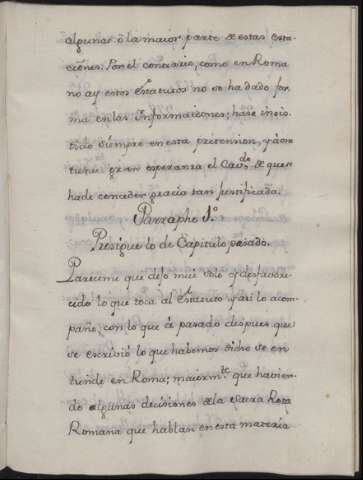 algunas, ô la maior parte de estas esta-
ciones. Por el contrario, como en Roma
no ay estos Estatutos no se ha dado for
ma en las Informaciones; hase insis-
tido siempre en esta pretension, y âora
tiene gran esperanza el Cavdo. de que se
hade conceder gracia tan justificada.
Parrapho 1.º
Prosigue lo de Capitulo pasado.
Pareceme que dejo mui
cido lo que toca al Estatuto y asi lo acom-
paño, con lo que â pasado despues que
se escrivió lo que habemos dicho se en
tiende en Roma; maiormte. que havien-
do algunas decisiones de la Sacra Rota
Romana que hablan en esta materia